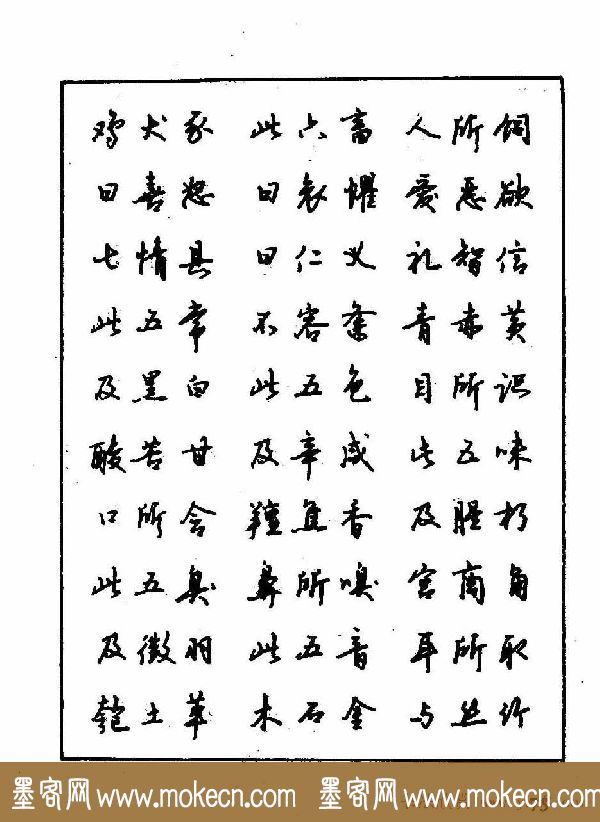 鸡犬豕 此六畜 人所饲
曰喜怒 曰哀惧 爱恶欲
七情具 曰仁义 礼智信
此五常 不容紊 青赤黄
及黑白 此五色 目所识
酸苦甘 及辛咸 此五味
口所含 膻焦香 及腥朽
此五臭 鼻所嗅 宫商角
及徵羽 此五音 耳所取
匏土革 木石金 与丝竹
墨客网 www.mokecn.com 墨客网 www.mokecn.com